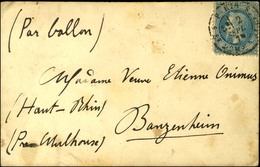 (Par ballon)
Madame Veuve Etienne Onimus
(Haut-Rhin)
(Pres Mulhouse) Banzenheim